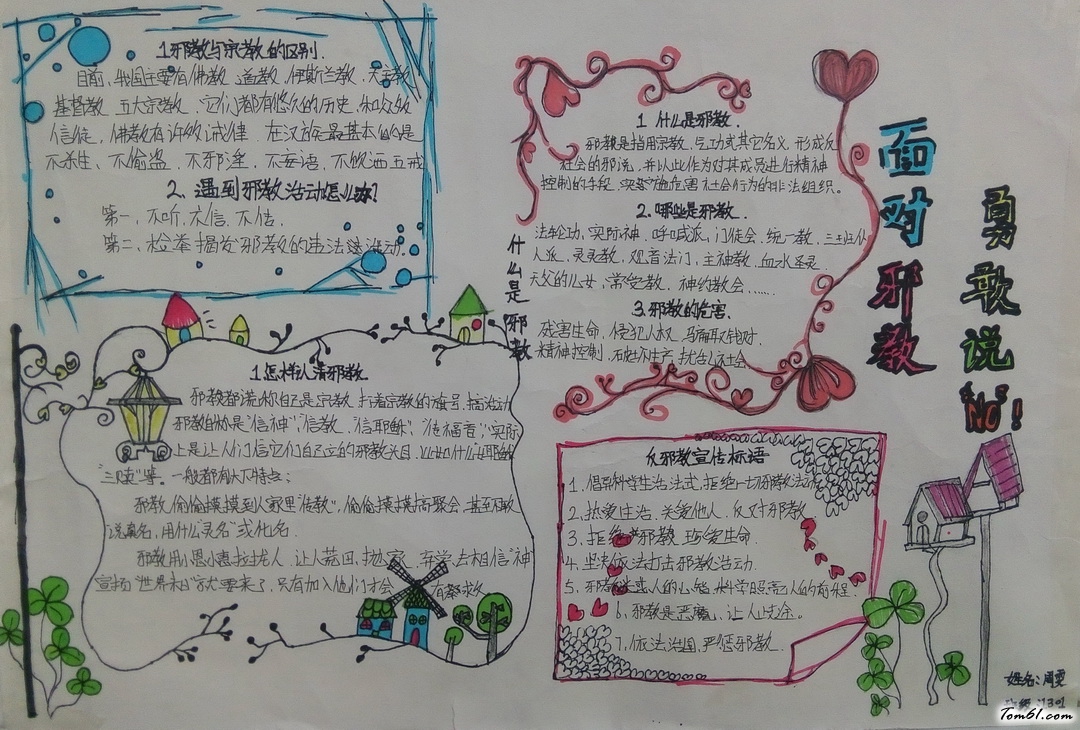 1.邪教与宗教的区别.
目前,我国主要有佛教 道教 伊斯兰教、天主教
基督教 五大宗教、它们都有悠久的历史 和众多
信徒,佛教有许多诫律 在汉族最基本的是
不杀生、不偷盗、不邪淫、不妄语、不饮酒五戒
2、遇到邪教活动怎么办?
第一,不听.不信.不传.
第二、检举揭发邪教的违法活动.
面对邪教
勇敢说"NO"!
什么是邪教
1 什么是邪教.
邪教是指用宗教、气功或其它名义,形成反
社会的邪说,并以此作为对其成员进行精神
控制的手段,实施危害社会行为的非法组织。
2.哪些是邪教.
法轮功,实际神、呼喊派,门徒会,统一教、三班仆
人派、灵灵教、观音法门、主神教、血水圣灵、
天父的儿女、常受教、神的教会……
3.邪教的危害.
残害生命,侵犯人权、骗取钱财.
精神控制、破坏生产,扰乱社会
1.怎样认清邪教
邪教都说你自己是宗教.打着宗教的旗号.搞活动
邪教自称是"信神""信教、"信耶稣"、"传福音","实际
上是让人们信它们自己立的邪教头目.
"三赎"等。一般都有以下特点:
邪教偷偷摸摸到人家里"传教",偷偷摸摸搞聚会.甚至不敢
说真名,用什么"灵名"或化名.
邪教用小恩小惠拉拢人.让人荒田,抛家、弃学去相信"神"
宣扬"世界末日"就要来了,只有加入他们才会 有救
反邪教宣传标语
1、倡导科学生活方式,拒绝一切邪教活动.
2、热爱生活.关爱他人.反对邪教.
3、拒绝邪教 珍爱生命.
4、坚决依法打击邪教活动.
5、邪教 人的心能 科学照亮人的前程!
6、邪教是恶魔,让人失途。
7、依法治国,严惩邪教.
姓名:周雯
班级:1301
Tom61.com